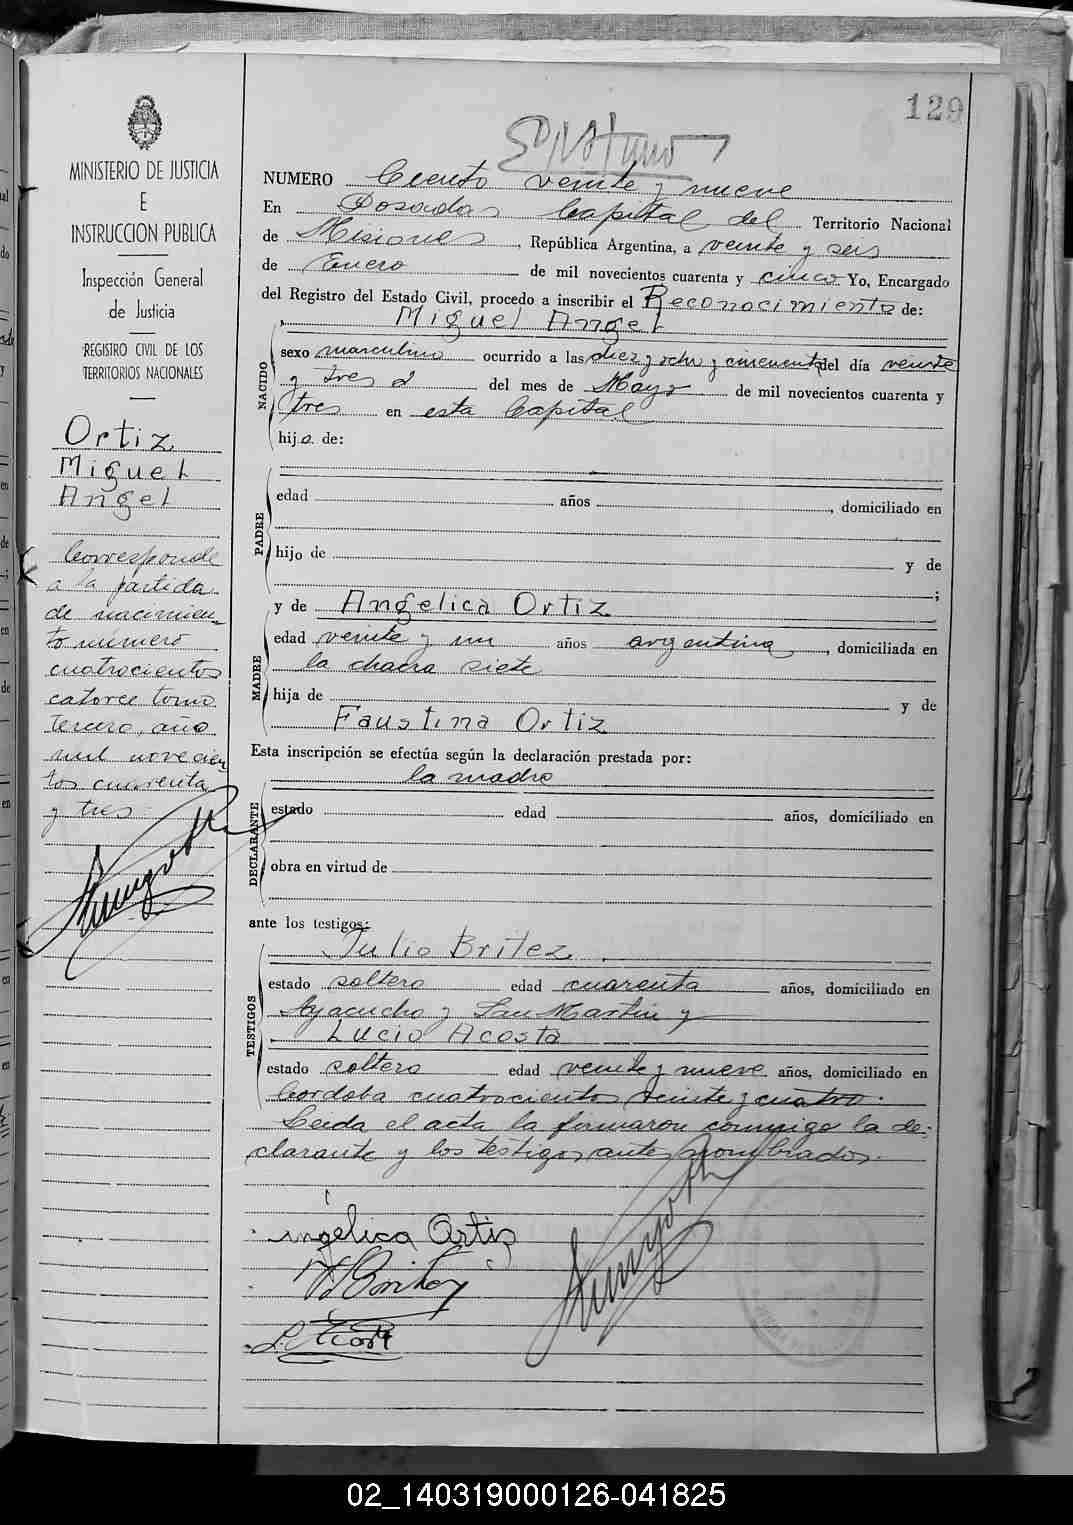 129
NUMERO Ciento veinte y nueve
MINISTERIO DE JUSTICIA
E
INSTRUCCION PUBLICA
Inspección General
de Justicia
REGISTRO CIVIL DE LOS
TERRITORIOS NACIONALES
Ortiz
Miguel
Angel
Corresponde
a la partida
de nacimien-
to número
cuatrocientos
catorce tomo
tercero, año
mil novecien
tos cuarenta
y tres
En Posadas Capital del Territorio Nacional
de Misiones, República Argentina, a veinte y seis
de Enero de mil novecientos cuarenta y cinco Yo, Encargado
del Registro del Estado Civil, procedo a inscribir el Reconocimiento de:
Miguel Angel
NACIDO
sexo masculino ocurrido a las diez y ocho y cincuenta del día veinte
y tres del mes de Mayo de mil novecientos cuarenta y
tres en esta Capital
hijo de:
PADRE
edad años , domiciliado en
hijo de y de
;
MADRE
y de Angelica Ortiz
edad veinte y un años argentina, domiciliada en
la chacra siete
hija de y de
Faustina Ortiz
Esta inscripción se efectúa según la declaración prestada por:
la madre
DECLARANTE
estado edad años, domiciliado en
obra en virtud de
ante los testigos:
TESTIGOS
Julio Britez
estado soltero edad cuarenta años, domiciliado en
Ayacucho y San Martin y
Lucio Acosta
estado soltero edad veinte y nueve años, domiciliado en
Cordoba cuatrocientos veinte y cuatro.
Leida el acta la firmaron conmigo la de-
clarante y los testigos antes nombrados.
Angélica Ortiz
02_140319000126-041825